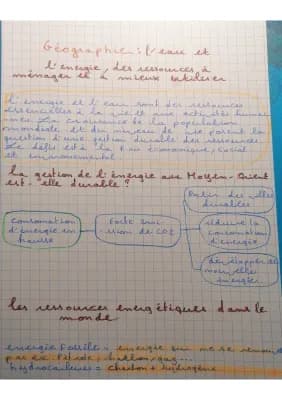 Géographie : l'eau et
l'énergie, des ressources à
ménager et à mieux utiliser
l'énergie et l'eau sont des ressources
essentielles à la vie et aux activités humai
nes. La croissance de la population
mondiale et du niveau de vie posent la
question d'une gestion durable des ressources.
Le défis est à la fois économique, social
et environnemental
la gestion de l'énergie aux Moyen-Orient
est-elle durable ?
Batir des villes
durables
Consomation
d'énergie en
hausse
Forte émi
-ssion de CO2
réduire la
consomation
d'énergie
développer de
nouvelle
énergies
les ressources énergétiques dans le
monde
énergie Fossile = énergie qui ne se renouv
par ex: Pétrole, charbon, gaz...
hydrocarbures = charbon + hydrogène